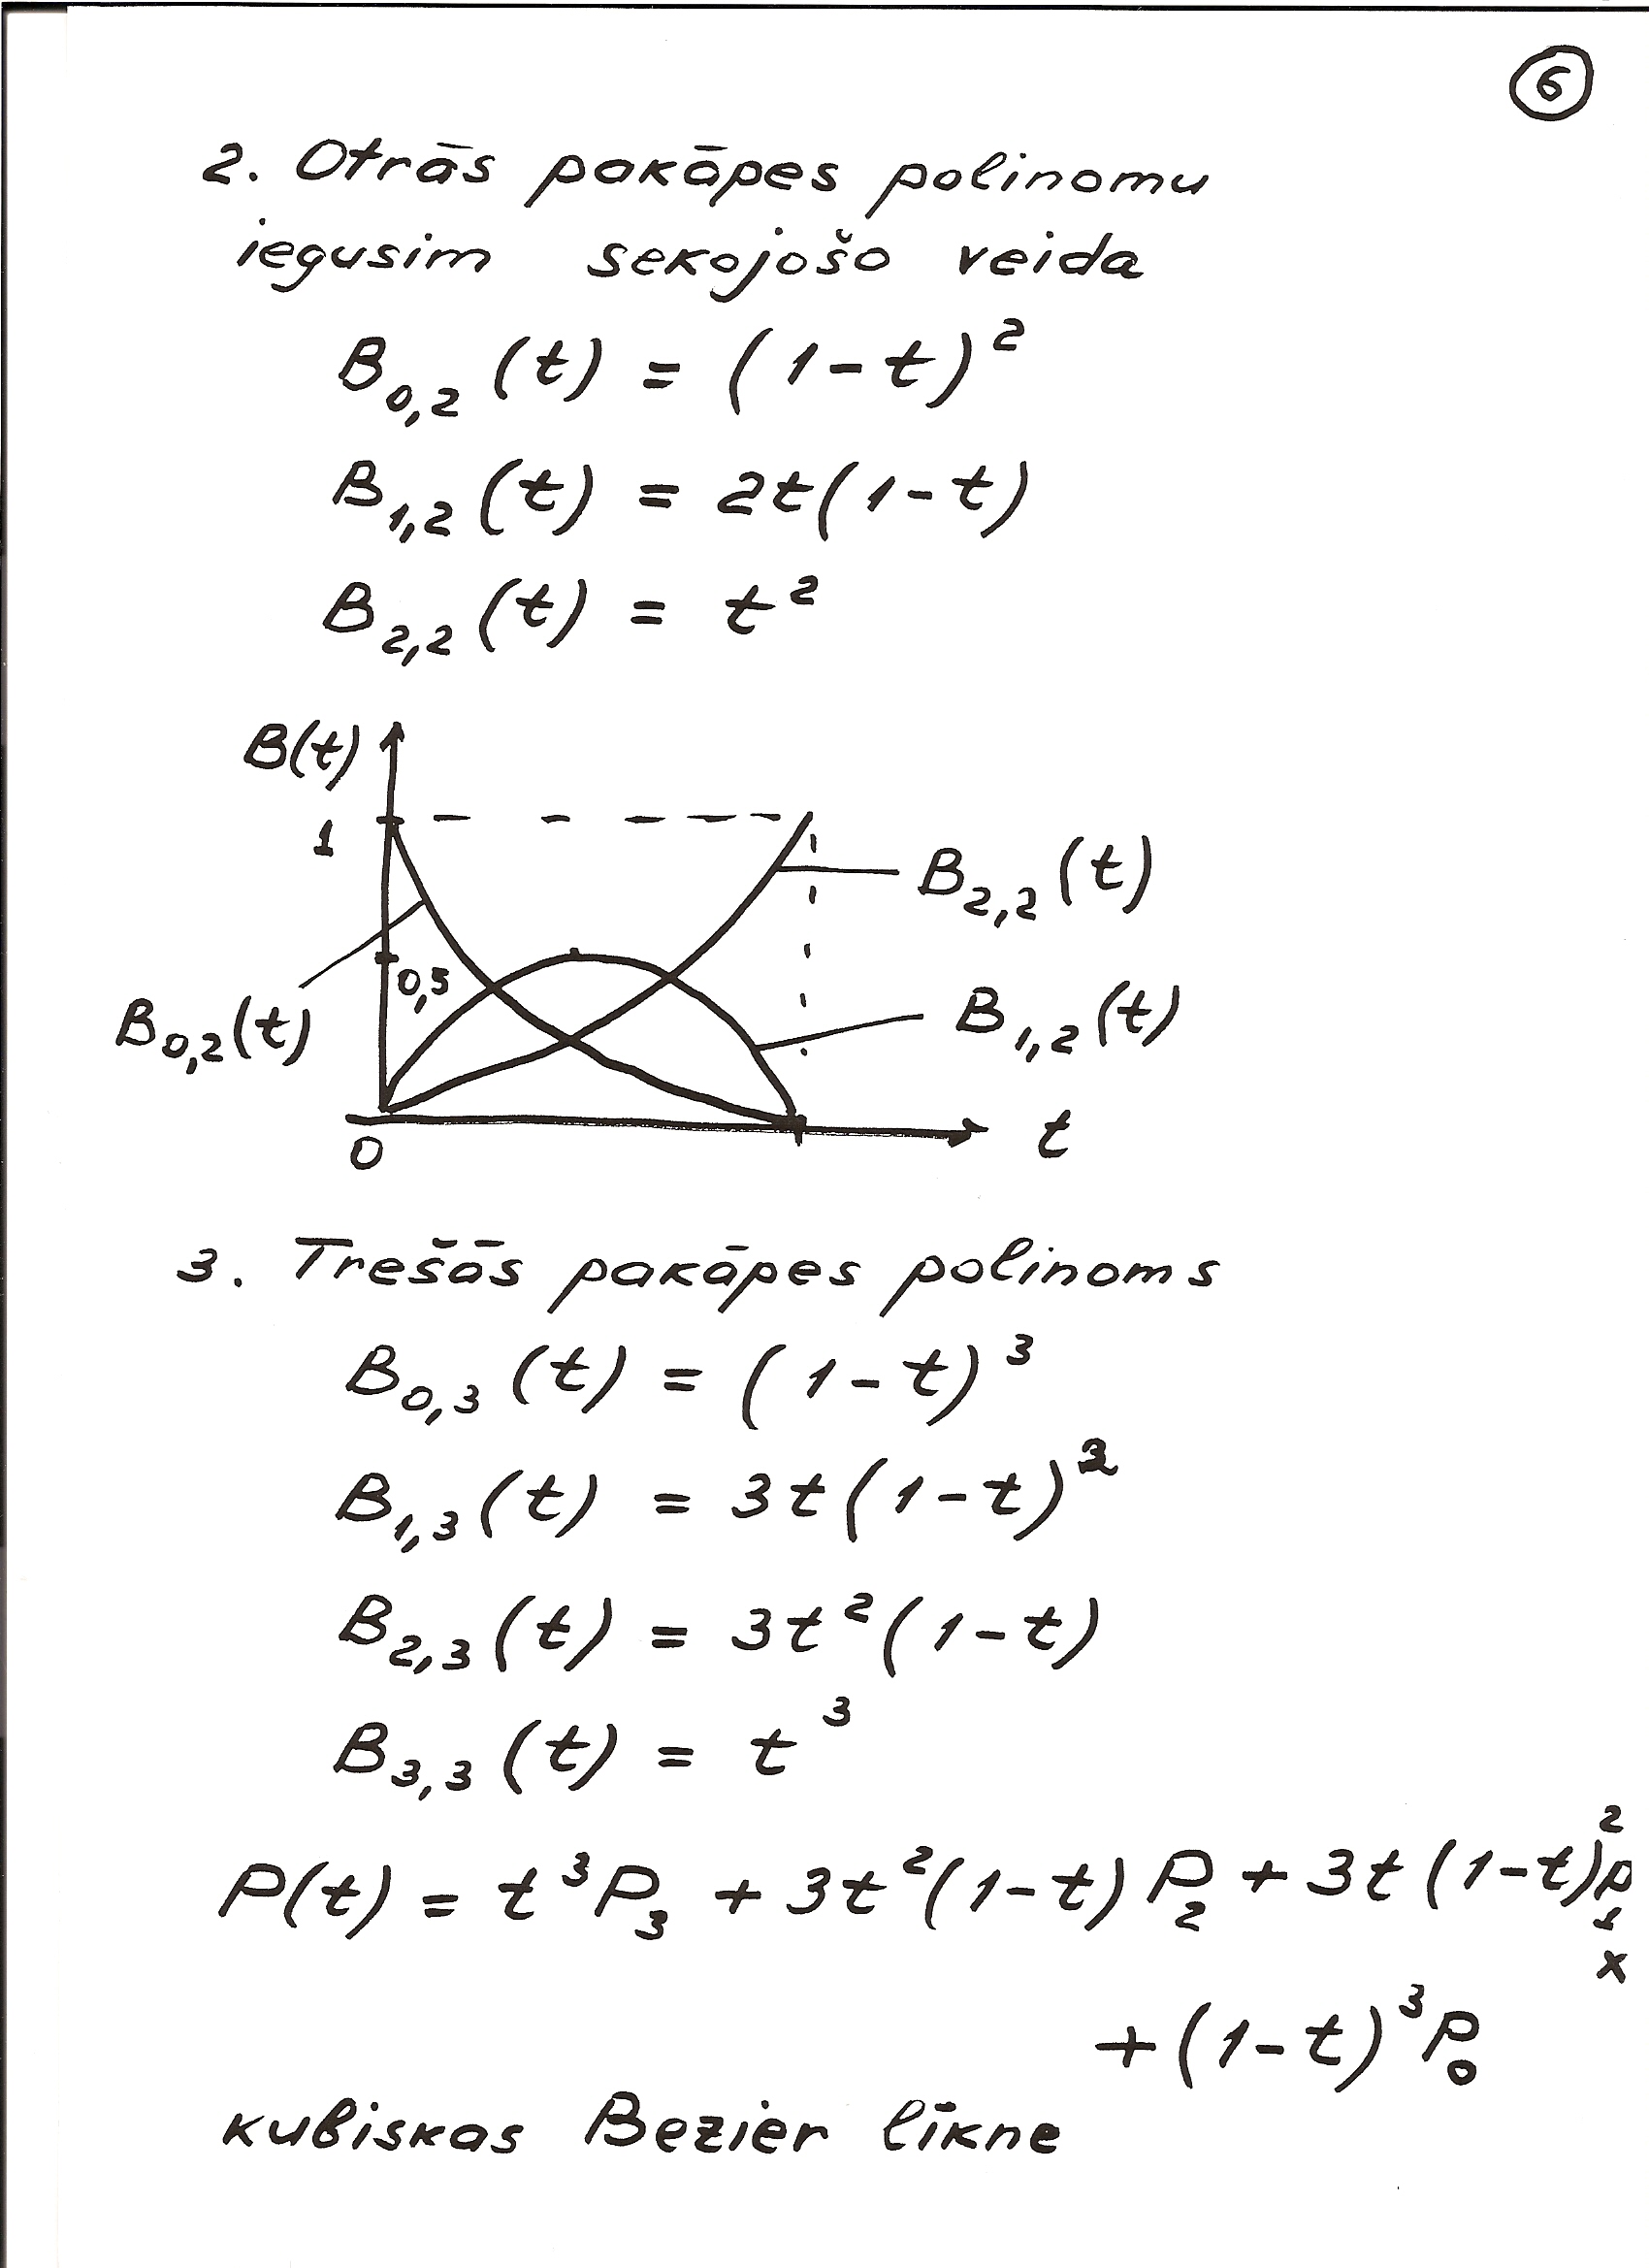 6
2. Otrās pakāpes polinomu
iegusim sekojošo veida
B₀,₂(t) = (1-t)²
B₁,₂(t) = 2t(1-t)
B₂,₂(t) = t²
B(t)
1
B₂,₂(t)
0,5
B₀,₂(t)
B₁,₂(t)
0
t
3. Trešās pakāpes polinoms
B₀,₃(t) = (1-t)³
B₁,₃(t) = 3t(1-t)²
B₂,₃(t) = 3t²(1-t)
B₃,₃(t) = t³
P(t) = t³P₃ + 3t²(1-t)P₂ + 3t(1-t)²P₁
x
+(1-t)³P₀
kubiskas Bezier līkne